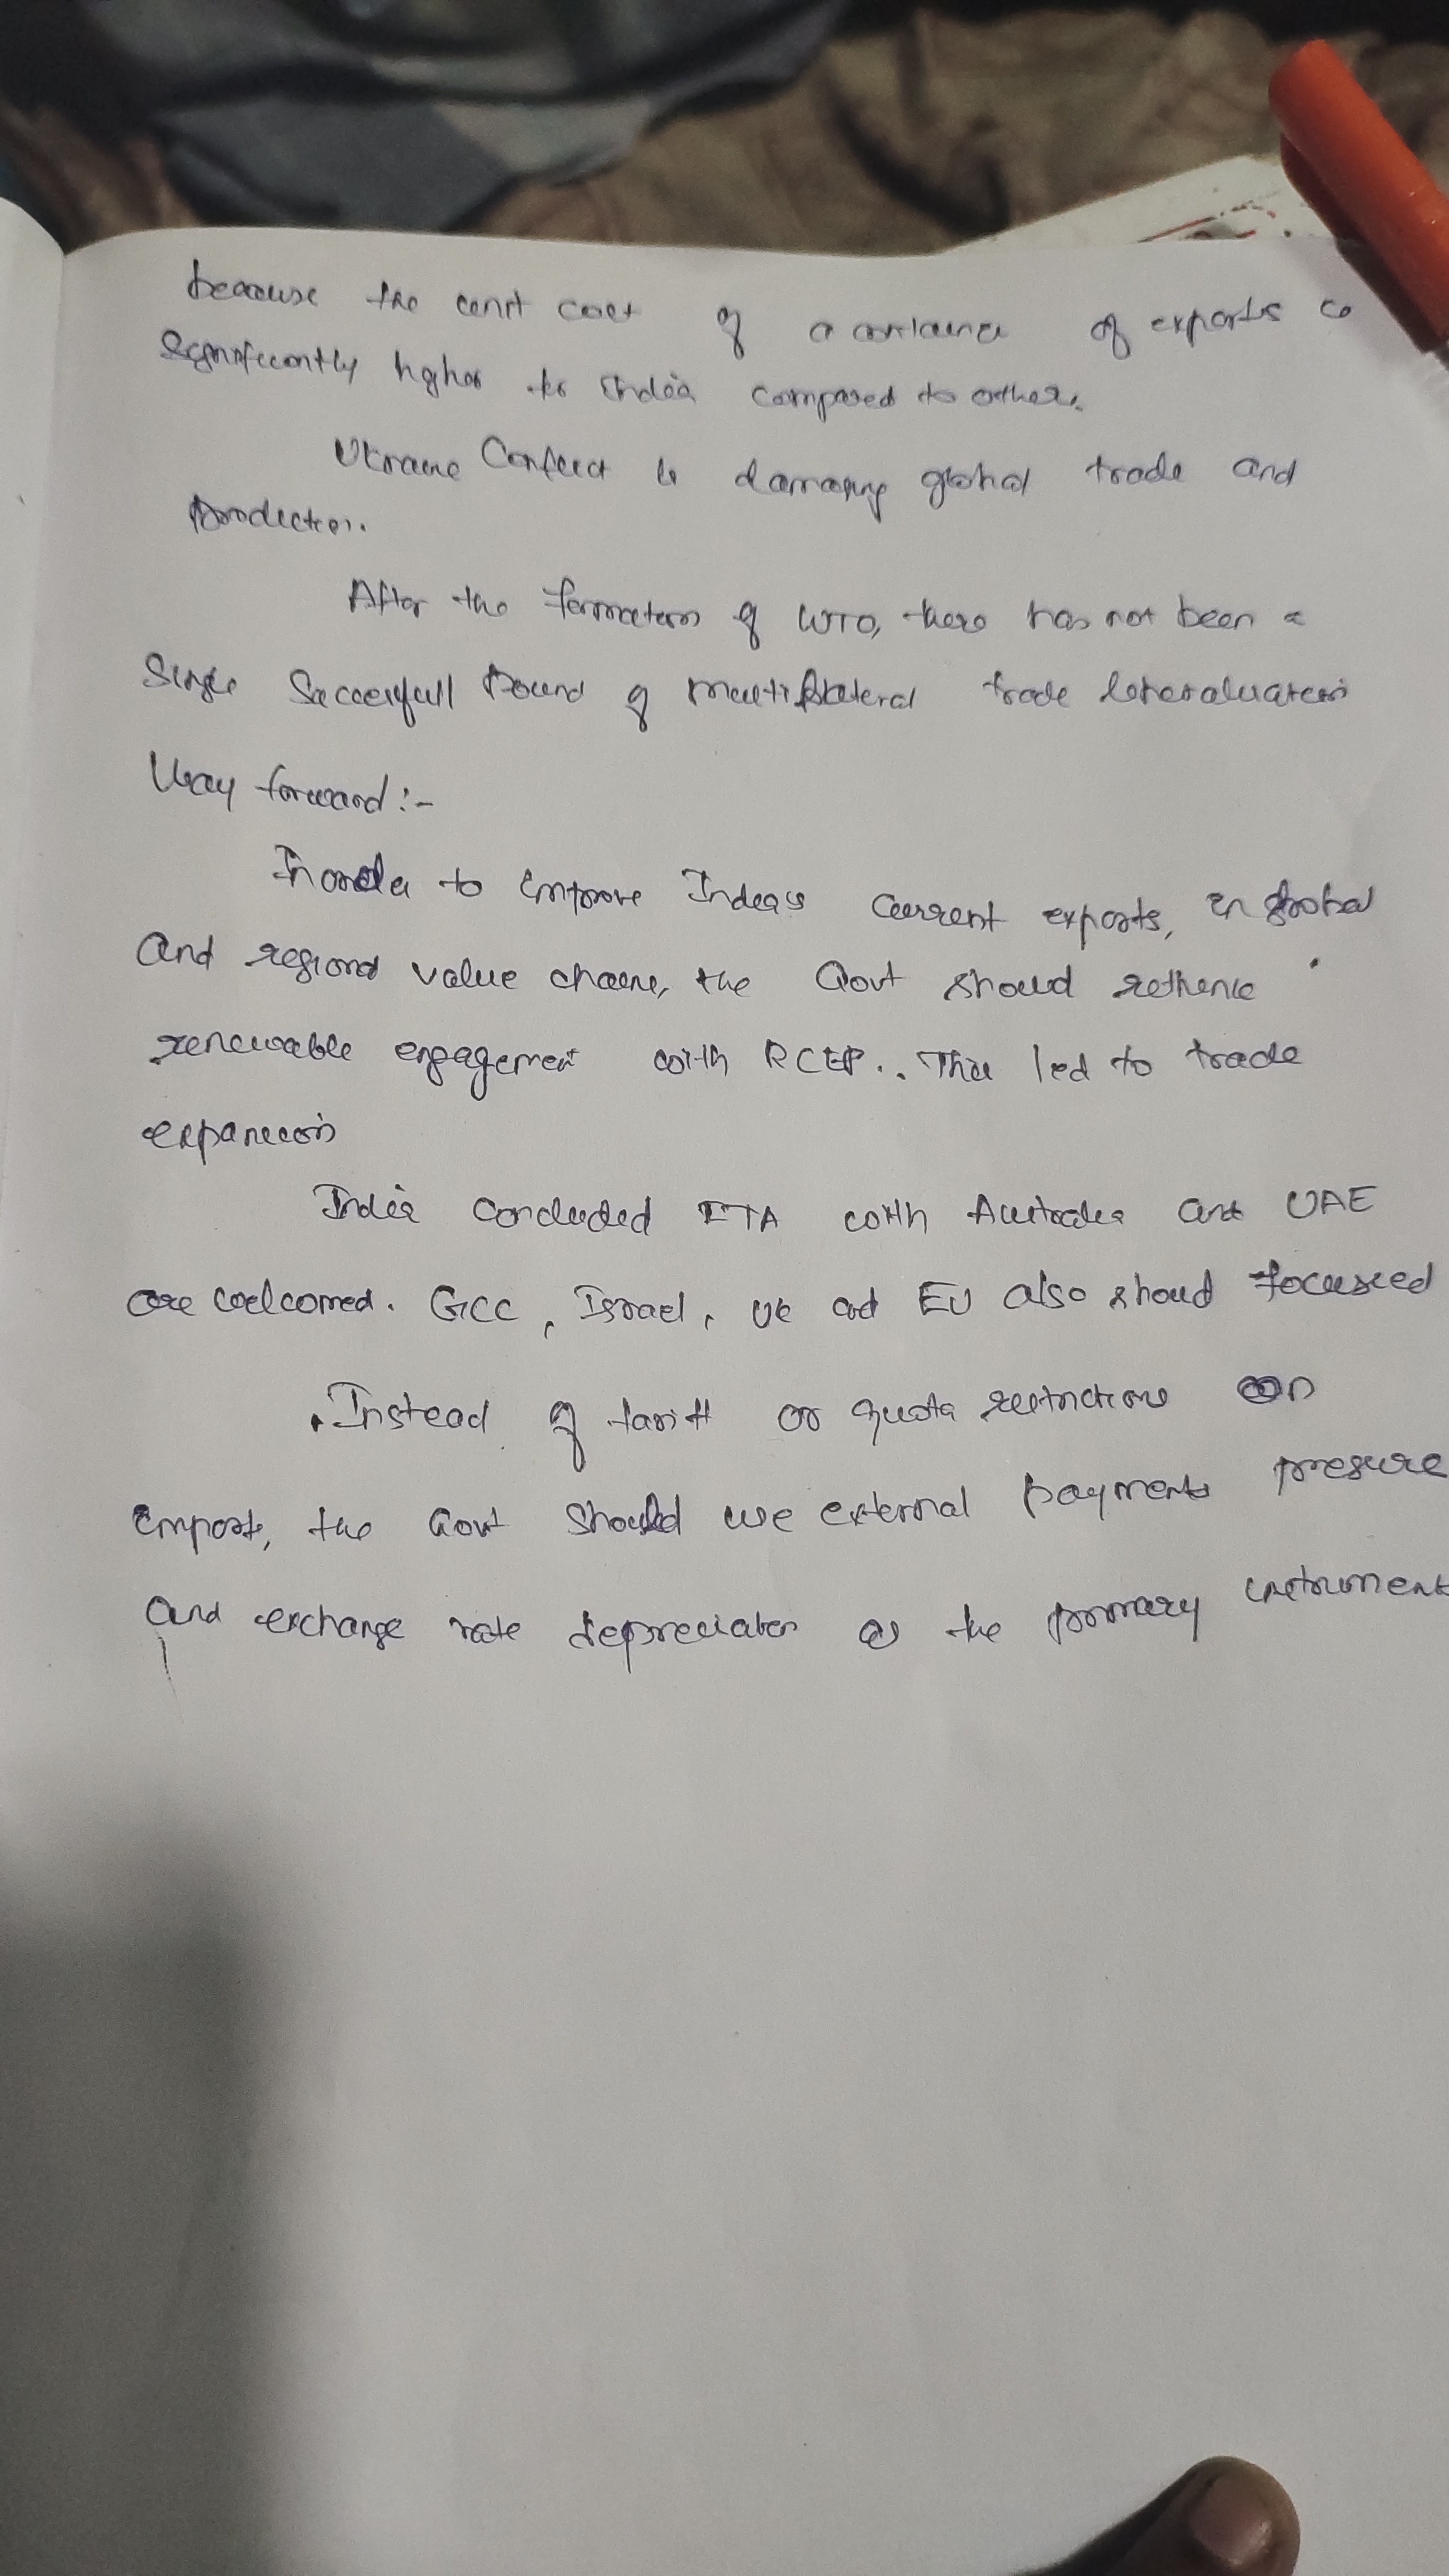 because the unit cost of a container of exports is
significantly higher to India compared to others.
Ukraine Conflict is damaging global trade and
production.
After the formation of WTO, there has not been a
Single Successfull Round of multilateral trade liberalisation
Way forward :-
In order to improve India's current exports, in global
and regional value chains, the Govt should rethink
renewable engagement with RCEP.. This led to trade
expansion
India concluded ETA with Australia and UAE
are welcomed. GCC, Israel, UK and EU also should focussed
Instead of tariff or quota restrictions on
import, the Govt should use external payments presure
and exchange rate depreciation as the primary instrument